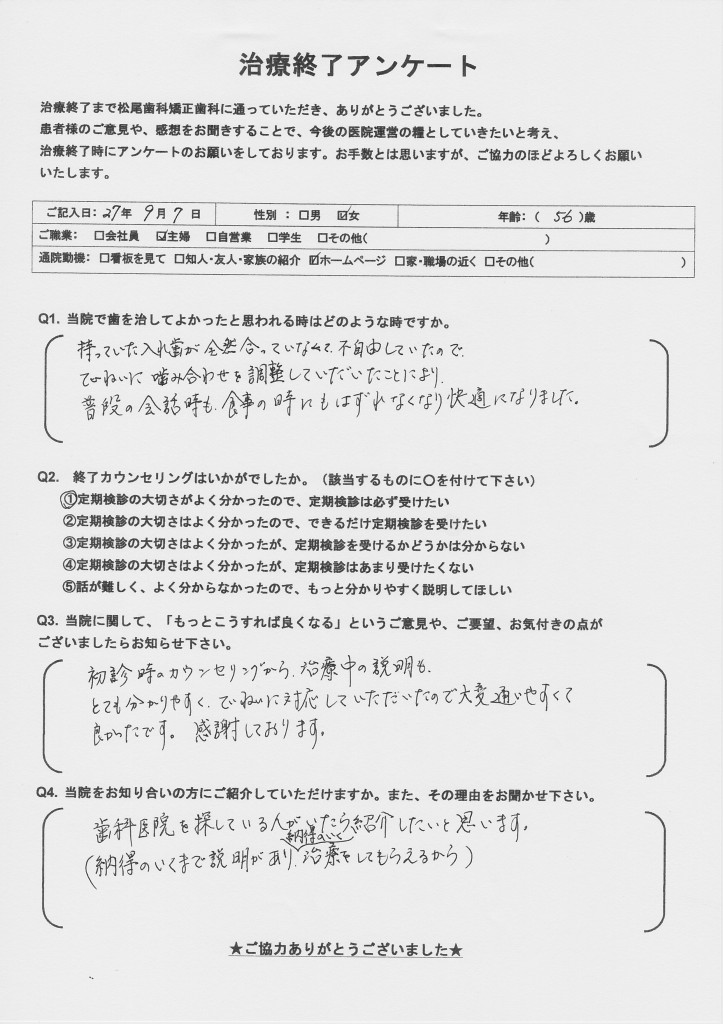 治療終了アンケート
治療終了まで松尾歯科矯正歯科に通っていただき、ありがとうございました。
患者様のご意見や、感想をお聞きすることで、今後の医院運営の糧としていきたいと考え、
治療終了時にアンケートのお願いをしております。お手数とは思いますが、ご協力のほどよろしくお願い
いたします。
ご記入日：27年 9月 7日 性別 ：□男 ☑女 年齢：（ 56 ）歳
ご職業： □会社員 ☑主婦 □自営業 □学生 □その他( )
通院動機：□看板を見て □知人・友人・家族の紹介 ☑ホームページ □家・職場の近く □その他( )
Q1. 当院で歯を治してよかったと思われる時はどのような時ですか。
持っていた入れ歯が全然合っていなくて、不自由していたので、
ていねいに噛み合わせを調整していただいたことにより、
普段の会話時も、食事の時にもはずれなくなり快適になりました。
Q2. 終了カウンセリングはいかがでしたか。（該当するものに〇を付けて下さい）
①定期検診の大切さがよく分かったので、定期検診は必ず受けたい
②定期検診の大切さはよく分かったので、できるだけ定期検診を受けたい
③定期検診の大切さはよく分かったが、定期検診を受けるかどうかは分からない
④定期検診の大切さはよく分かったが、定期検診はあまり受けたくない
⑤話が難しく、よく分からなかったので、もっと分かりやすく説明してほしい
Q3. 当院に関して、「もっとこうすれば良くなる」というご意見や、ご要望、お気付きの点が
ございましたらお知らせ下さい。
初診時のカウンセリングから、治療中の説明も、
とても分かりやすく、ていねいに対応していただいたので大変通いやすくて
良かったです。感謝しております。
Q4. 当院をお知り合いの方にご紹介していただけますか。また、その理由をお聞かせ下さい。
歯科医院を探している人がいたら紹介したいと思います。
納得のいく
（納得のいくまで説明があり、治療をしてもらえるから）
★ご協力ありがとうございました★